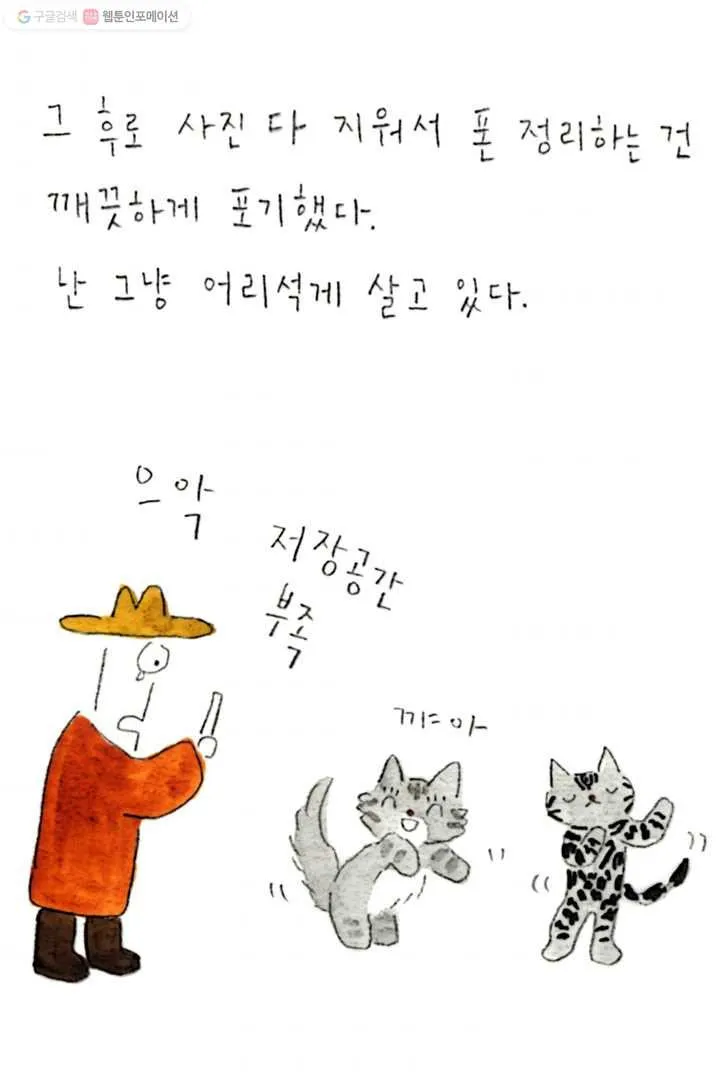 구글검색 웹툰인포메이션
그 후로 사진 다 지워서 폰 정리하는 건
깨끗하게 포기했다.
난 그냥 어리석게 살고 있다.
으악
저장공간
부족
꺄아